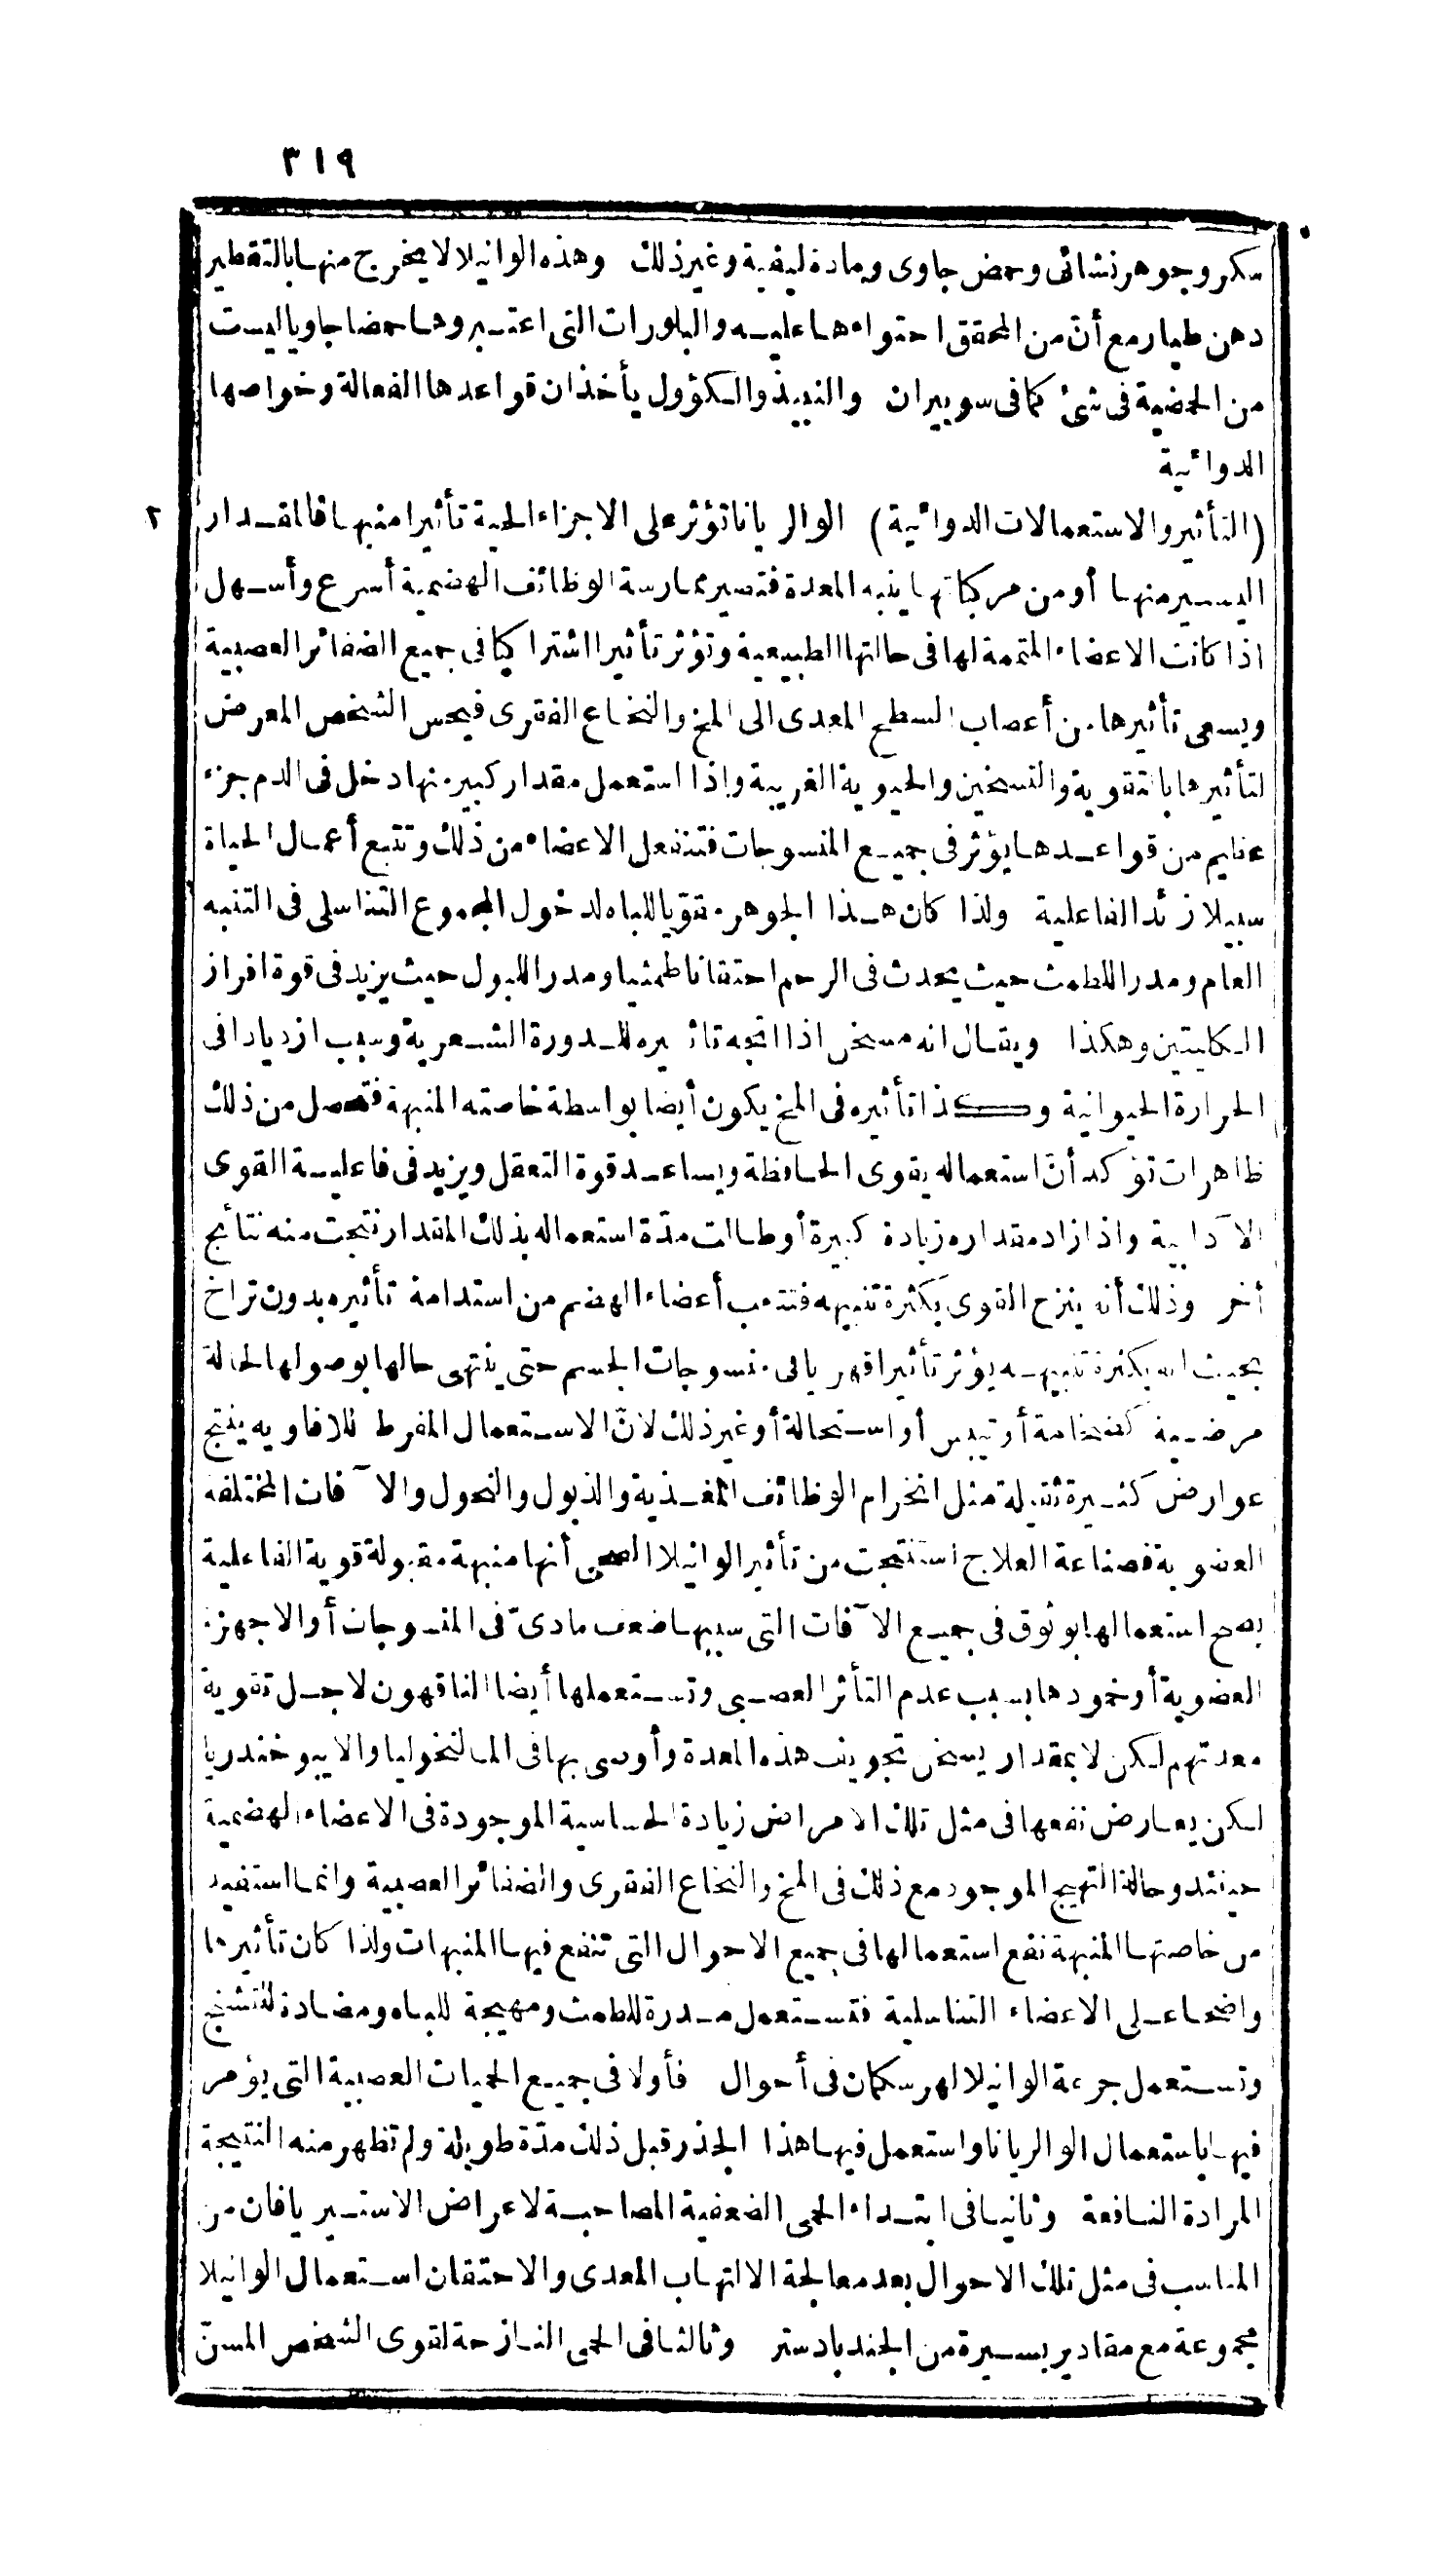 ٣١٩
سكر وجوهر نشائى وحمض جاوى ومادة ليفية وغير ذلك وهذه الوانيلا لا يخرج منها بالتقطير
دهن طيار مع أنّ من المحقق احتواءها عليه والبلورات التى اعتبروها حمضا جاويا ليست
من الحمضية فى شئ كما فى سوبيران والنبيذ والكؤول يأخذان قواعدها الفعالة وخواصها
الدوائية
(التأثير والاستعمالات الدوائية) الواليريانا تؤثر على الاجزاء الحية تأثيرا منبها فالمقدار
٢
اليسير منها أو من مركباتها ينبه المعدة فتصير ممارسة الوظائف الهضمية أسرع وأسهل
اذا كانت الاعضاء المتممة لها فى حالتها الطبيعية وتؤثر تأثيرا اشتراكيا فى جميع الضفائر العصبية
ويسعى تأثيرها من أعصاب السطح المعدى الى المخ والنخاع الفقرى فيحس الشخص المعرض
لتأثيرها بالتقوية والتسخين والحيوية الغريبة واذا استعمل مقدار كبير منها دخل فى الدم جزء
عظيم من قواعدها يؤثر فى جميع المنسوجات فتنفعل الاعضاء من ذلك وتتبع أعمال الحياة
سبيلا زائد الفاعلية ولذا كان هذا الجوهر مقوّيا للباه لدخول المجموع التناسلى فى التنبه
العام ومدرا للطمث حيث يحدث فى الرحم احتقانا طمثيا ومدرا للبول حيث يزيد فى قوة افراز
الكليتين وهكذا ويقال انه مسخن اذا اتجه تاثيره للدورة الشعرية وسبب ازديادا فى
الحرارة الحيوانية وكذا تأثيره فى المخ يكون أيضا بواسطة خاصته المنبهة فتحصل من ذلك
ظاهرات تؤكد أنّ استعماله يقوى الحافظة ويساعد قوة التعقل ويزيد فى فاعلية القوى
الآدابية واذا زاد مقداره زيادة كبيرة أوطالت مدّة استعماله بذلك المقدار نتجت منه نتائج
أخر وذلك أنه ينزح القوى بكثرة تنبيهه فتتعب أعضاء الهضم من استدامة تأثيره بدون تراخ
بحيث انه بكثرة تنبيهه يؤثر تأثيرا قهريا فى منسوجات الجسم حتى ينتهى حالها بوصولها لحالة
مرضية كضخامة أو تيبس أو استحالة أو غير ذلك لانّ الاستعمال المفرط للافاويه ينتج
عوارض كثيرة ثقيلة مثل انخرام الوظائف المغذية والذبول والنحول والآفات المختلفة
العضوية فصناعة العلاج استنتجت من تأثير الوانيلا الصحى أنها منبهة مقبولة قوية الفاعلية
يصح استعمالها بوثوق فى جميع الآفات التى سببها ضعف مادىّ فى المنسوجات أو الاجهزة
العضوية أو خمودها بسبب عدم التأثر العصبى وتستعملها أيضا الناقهون لاجل تقوية
معدتهم لكن لا بمقدار يسخن تجويف هذه المعدة وأوصى بها فى المالنخوليا والايبوخندريا
لكن يعارض نفعها فى مثل تلك الامراض زيادة الحساسية الموجودة فى الاعضاء الهضمية
حينئذ وحالة التهيج الموجود مع ذلك فى المخ والنخاع الفقرى والضفائر العصبية وانما استفيد
من خاصتها المنبهة نفع استعمالها فى جميع الاحوال التى تنفع فيها المنبهات ولذا كان تأثيرها
واضحا على الاعضاء التناسلية فتستعمل مدرة للطمث ومهيجة للباه ومضادة للتشنج
وتستعمل جرعة الوانيلا لهرسكمان فى أحوال فأولا فى جميع الحميات العصبية التى يؤمر
فيها باستعمال الواليريانا واستعمل فيها هذا الجذر قبل ذلك مدّة طويلة ولم تظهر منه النتيجة
المرادة النافعة وثانيا فى ابتداء الحمى الضعفية المصاحبة لاعراض الاستيريا فان من
المناسب فى مثل تلك الاحوال بعد معالجة الالتهاب المعدى والاحتقان استعمال الوانيلا
مجموعة مع مقادير يسيرة من الجندبادستر وثالثا فى الحمى النازحة لقوى الشخص المسنّ